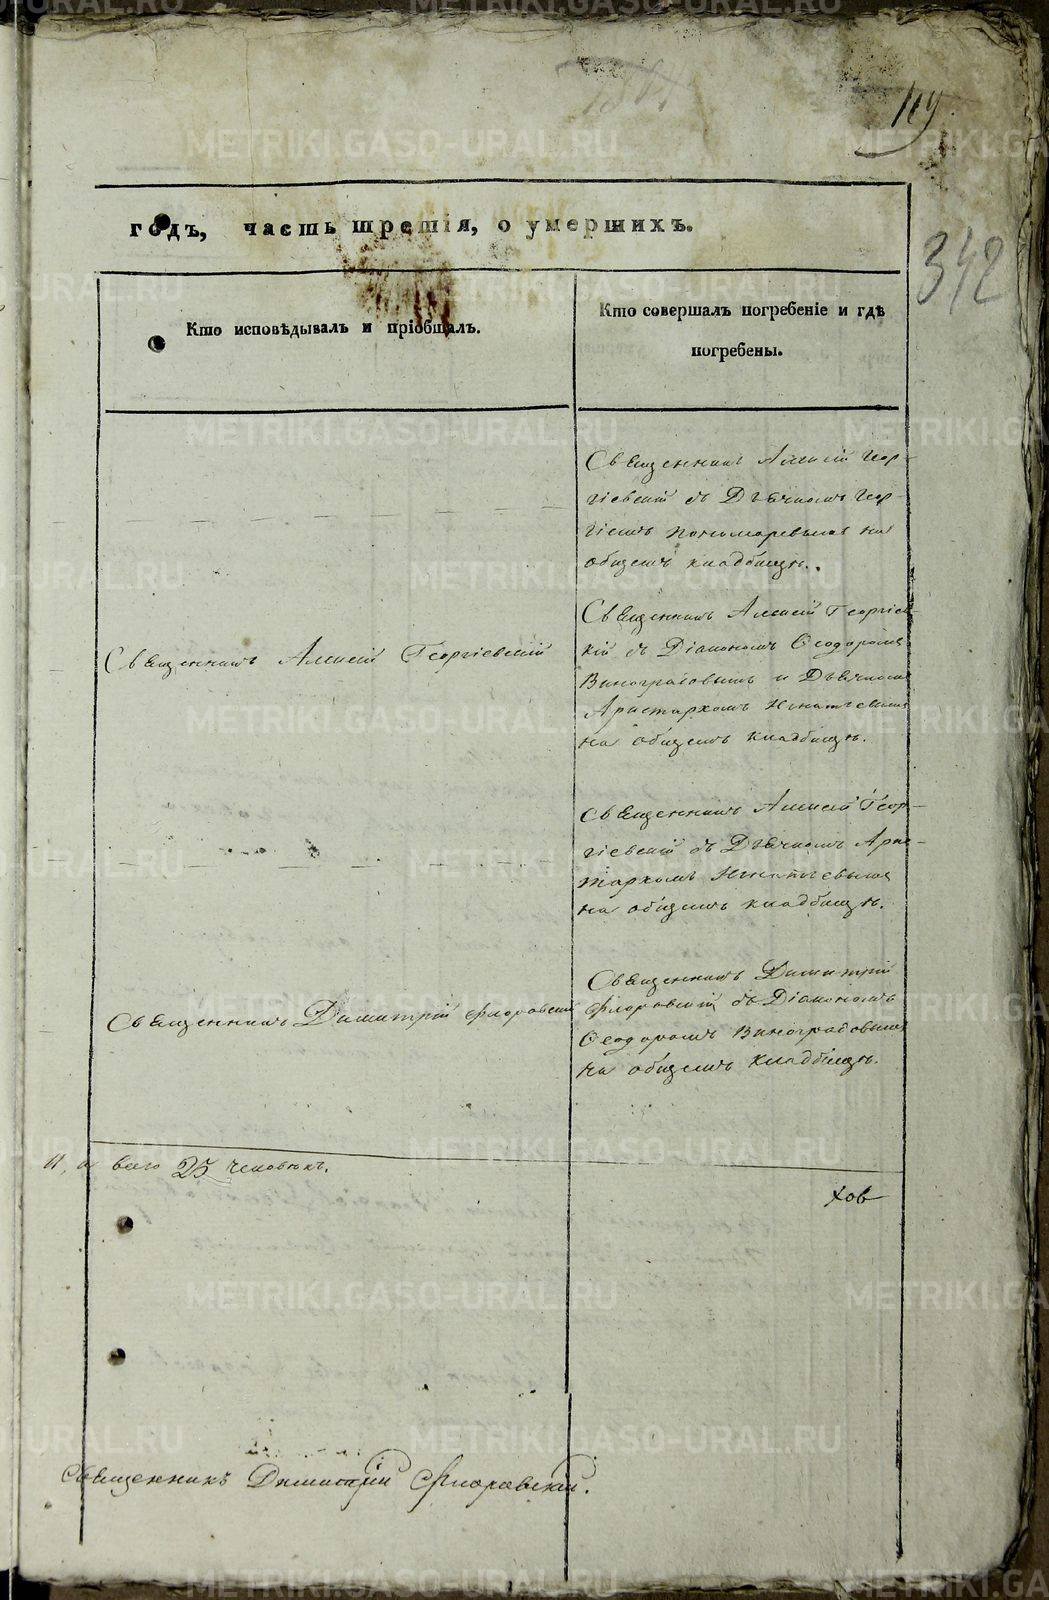 119
342
годъ, часть третія, о умершихъ.
Кто исповѣдывалъ и пріобщалъ.
Кто совершалъ погребеніе и гдѣ
погребены.
Священникъ Алексій Геор-
гіевскій съ Дьячкомъ Геор-
гіемъ Пономаревымъ на
общемъ кладбищѣ.
Священникъ Алексій Георгіевскій
Священникъ Алексій Георгіевс-
кій съ Діакономъ Ѳеодоромъ
Виноградовымъ и Дьячкомъ
Аристархомъ Игнатьевымъ
на общемъ кладбищѣ.
Священникъ Алексій Геор-
гіевскій съ Дьячкомъ Арис-
тархомъ Игнатьевымъ
на общемъ кладбищѣ.
Священникъ Димитрій Флоровскій
Священникъ Димитрій
Флоровскій съ Діакономъ
Ѳеодоромъ Виноградовымъ
на общемъ кладбищѣ.
а всего 25 человѣкъ.
ховъ
Священникъ Димитрій Флоровскій.
METRIKI.GASO-URAL.RU